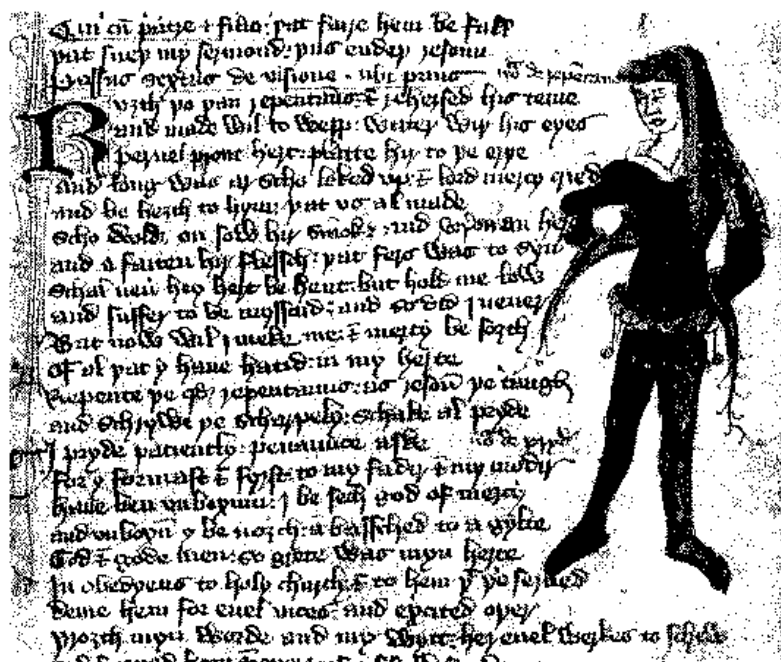 Qui cū patre & filio: þat faire hem be fall
þat suep my sermond: þus endep resoun
Passus sextus de visione · ubi prius no de repentans
Ryth þo ran repentaunus: & rehersed his teme
And made Wil to wepp: water wiþ his eyes
Pernel prout hert: platte hir to þe erþe
And long was scho loked up: & lord mercy cried
And be heizth to hym: þat us al made
Scho wold on sow hir smoke: and set on an heyr
And a faiten hir flessch: þat fers was to syn
Schal neu hey hert be hent: but hold me low
And suffer to be myssaid: and so did i neuer
Bot now wil i meke me: & mercy be sech
Of al þat y haue hatid: in my herte
Repente þe qd repentaunus: as resoū þe taught
And schryue þe scharpely: schake al pryde
I pryde paciently: penaunce aske no de pryd
For y formast & fyrst: to my fadir & my modir
haue ben unboxum: i be sech god of mercy
and unboxū y be noght: abasched to agylte
God & gode men: so grete was myn herte
In obedyens to holy church: & to hem þt serued
Deme hem for euel vices: and excited oþer
Þrogh myn worde and my wytt: her euel werkes to schew